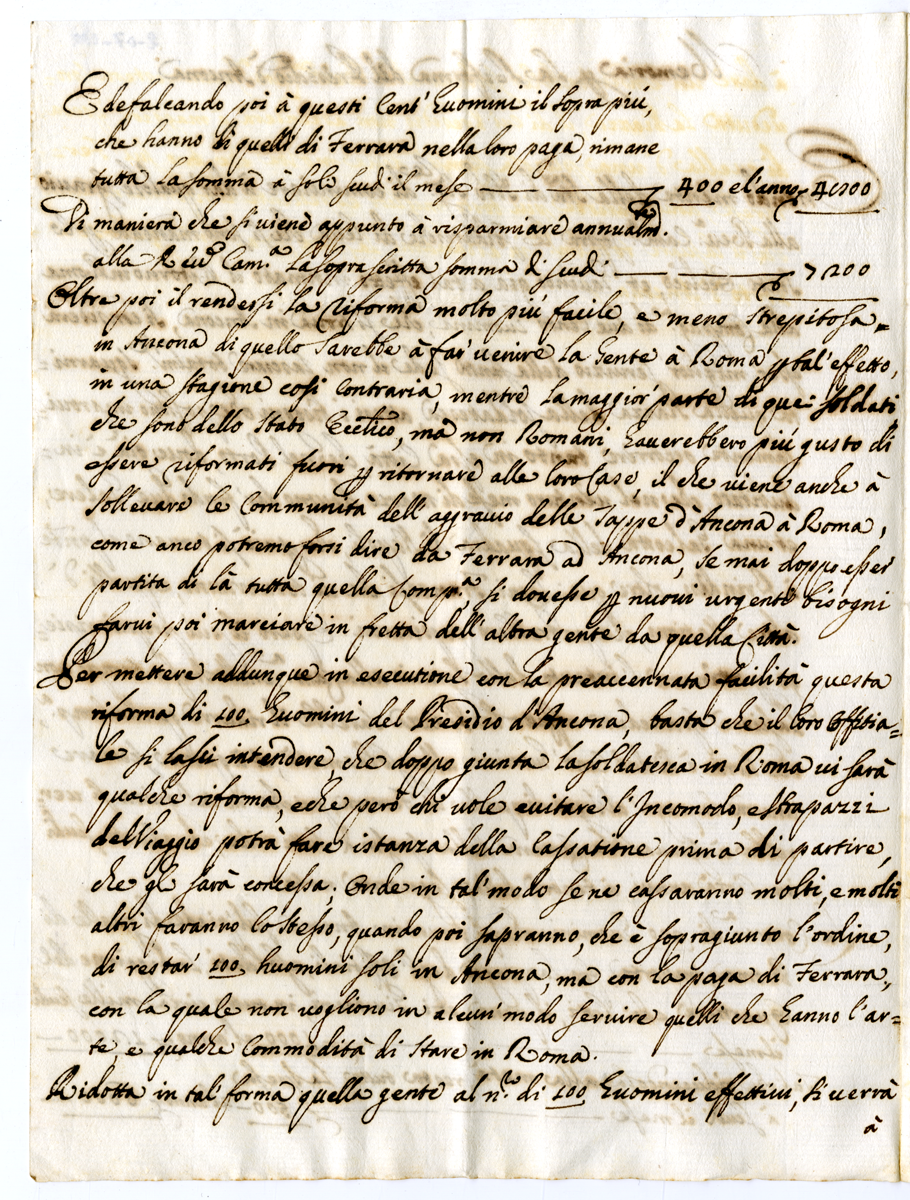 E defalcando poi à questi Cent' huomini il sopra più,
che hanno li quelli di Ferrara nella loro paga, rimane
tutta la somma à soli scudi il mese — 400 el'anno 4800
Di maniera che si viene appunto à risparmiare annualmte.
alla Revda Cam.a la soprascritta somma di scudi — 7200
Oltre poi il rendessi la riforma molto più facile, e meno strepitosa=
in Ancona di quello sarebbe à far' venire la Gente à Roma p tal'effetto,
in una stagione così contraria, mentre la maggior' parte di que' soldati
che sono dello stato Eccl.co, mà non Romani, hauerebbero più gusto di
essere riformati fuori p ritornare alle loro Case, il che viene anche à
sollevare le Communità dell'aggravio delle Tappe d'Ancona à Roma,
come anco potremo forsi dire da Ferrara ad Ancona, se mai doppo esser
partita di là tutta quella Comp.a, si douesse p nuovi urgenti bisogni
farui poi marciare in fretta dell'altra gente da quella Città.
Per mettere addunque in esecutione con la preaccennata facilità questa
riforma di 100 huomini del Presidio d'Ancona, basta che il loro Offitia=
le si lasci intendere, che doppo giunta la soldatesca in Roma ui sarà
qualche riforma, e che però chi vole evitare l'Incomodo, e strapazzi
del Viaggio potrà fare istanza della Cassatione prima di partire,
che gli sarà concessa; Onde in tal' modo se ne cassaranno molti, e molti
altri faranno lo stesso, quando poi sapranno, che è sopragiunto l'ordine,
di restar' 100 huomini soli in Ancona, ma con la paga di Ferrara,
con la quale non vogliono in alcun' modo servire quelli che hanno l'ar=
te, e qualche Commodità di stare in Roma.
Ridotta in tal' forma quella gente al n.ro di 100 huomini effettivi, si verrà
à